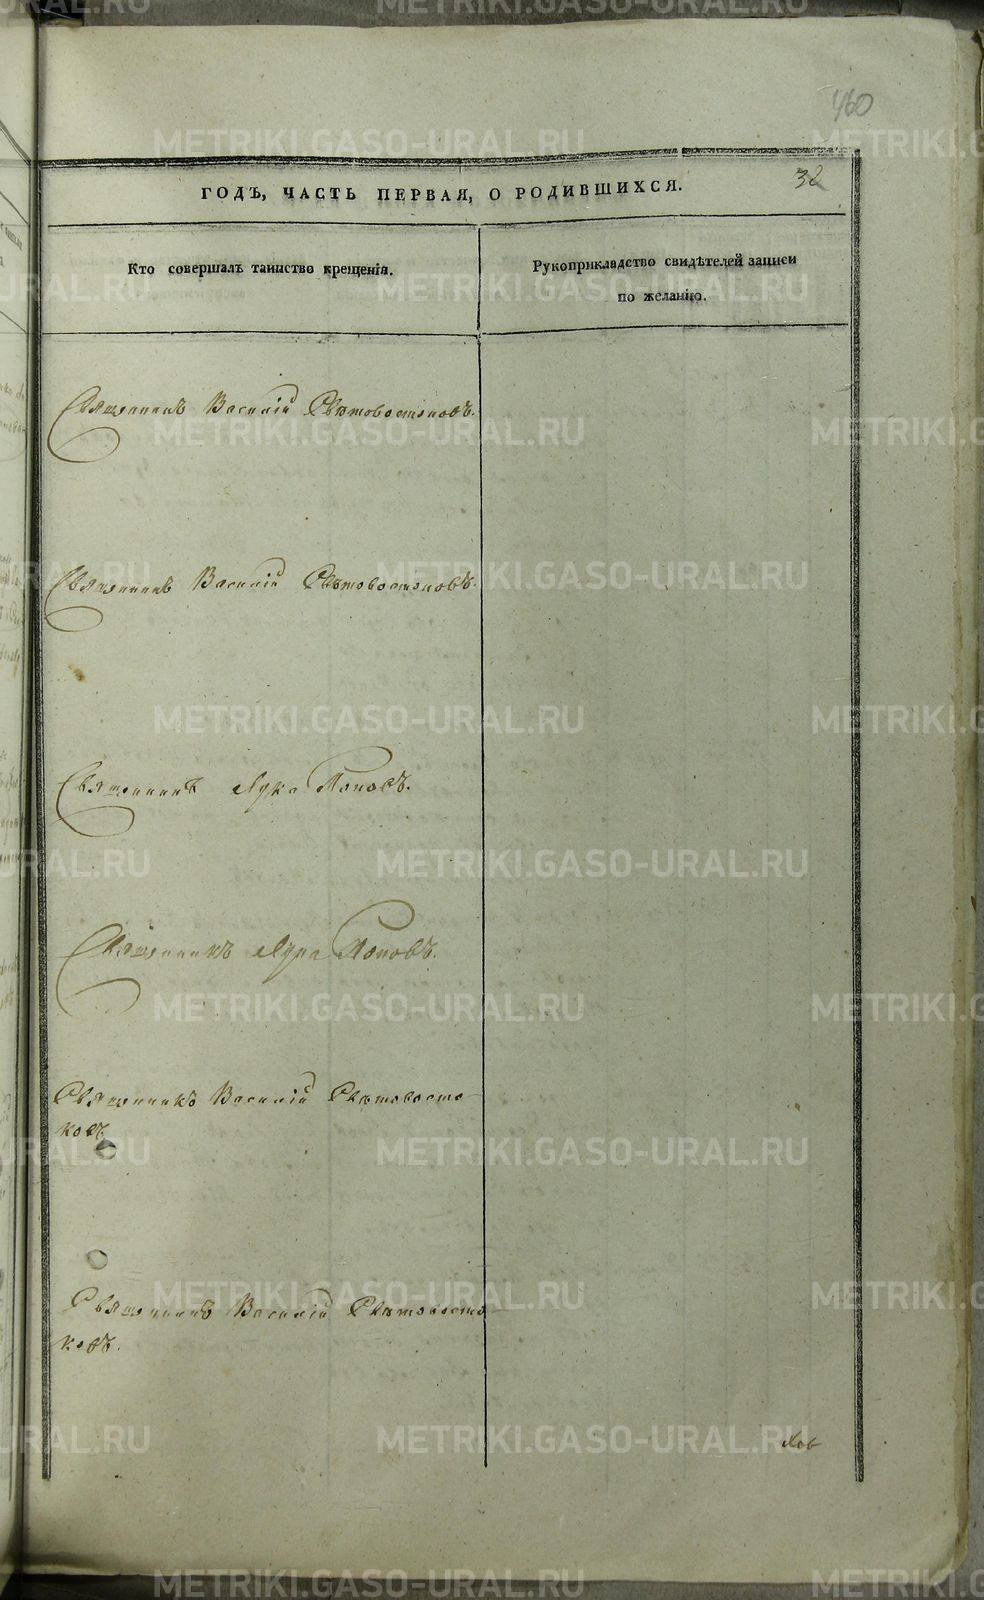 460
32
ГОДЪ, ЧАСТЬ ПЕРВАЯ, О РОДИВШИХСЯ.
Кто совершалъ таинство крещенія.
Рукоприкладство свидѣтелей записи
по желанію.
Священникъ Василій Свѣтовостоковъ.
Священникъ Василій Свѣтовостоковъ.
Священникъ Лука Поповъ.
Священникъ Лука Поповъ.
Священникъ Василій Свѣтовосто-
ковъ.
Священникъ Василій Свѣтовосто-
ковъ.
METRIKI.GASO-URAL.RU